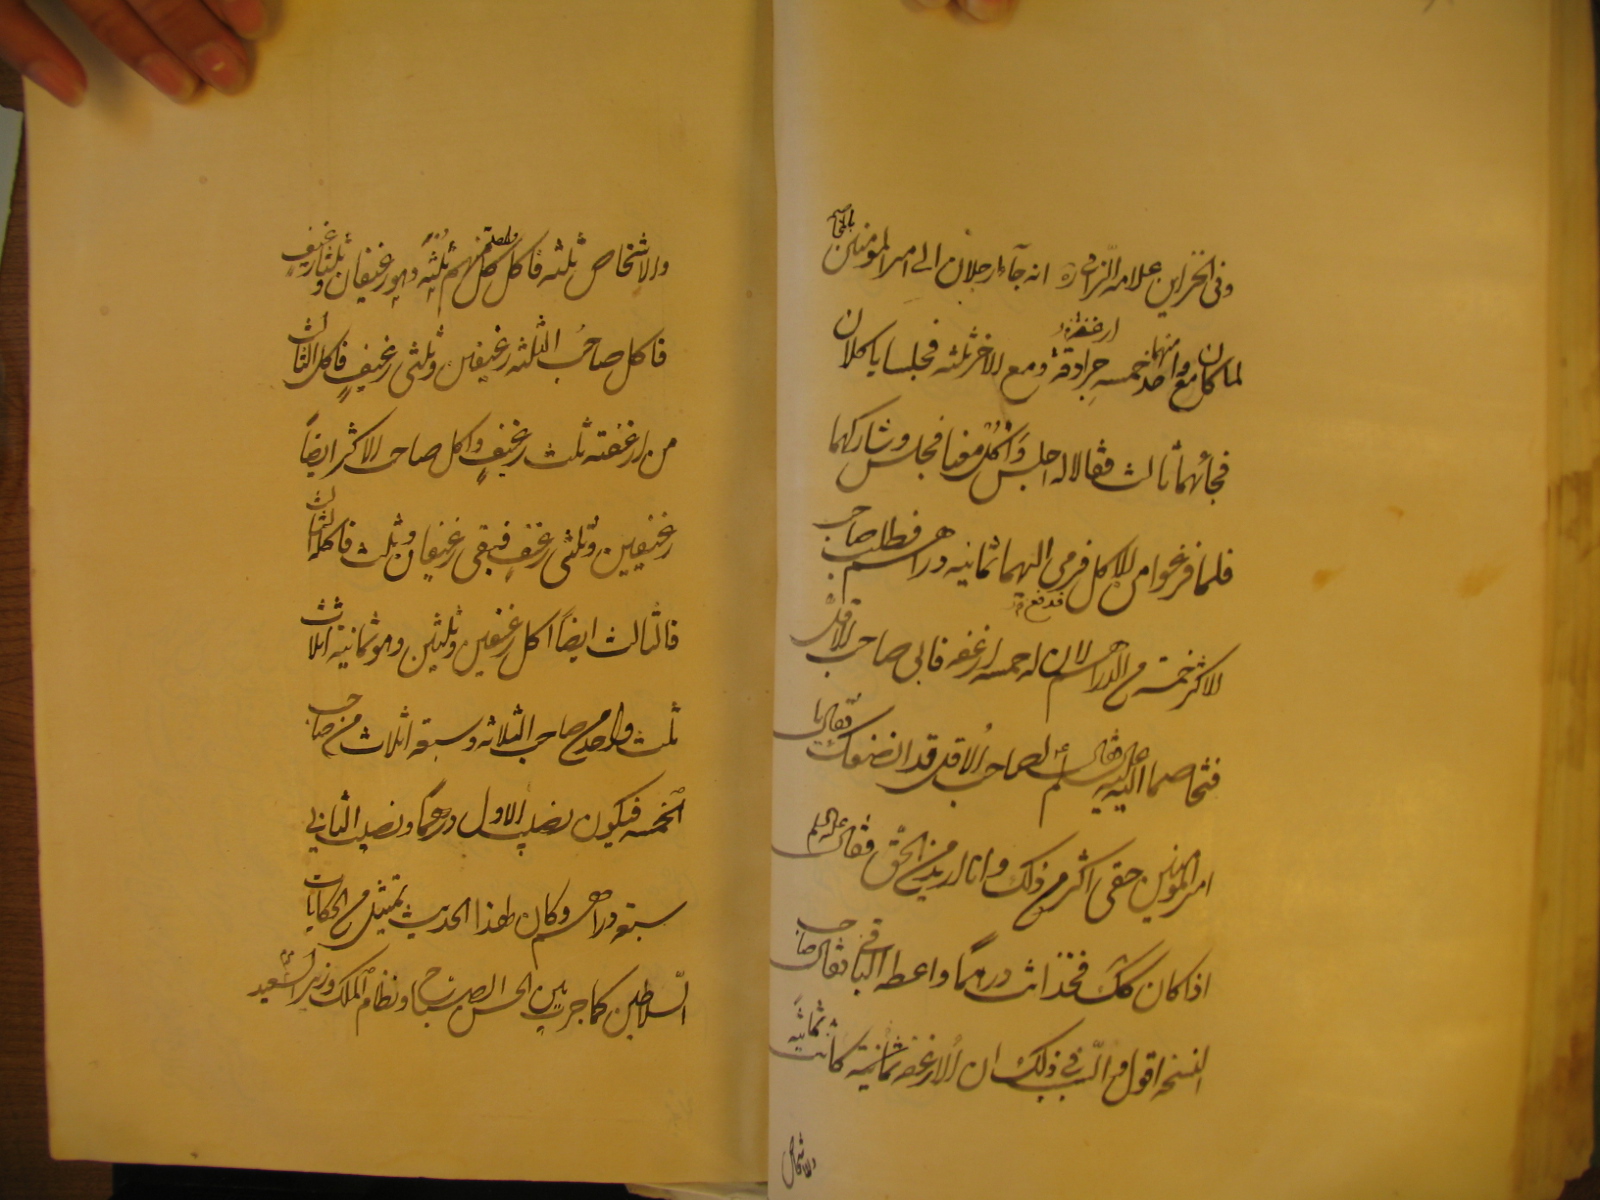 وفی الخزاین علامه النراقی ره انه جآء رجلان الی امیر المومنین
لما کان مع واحد منهما خمسه جرادقة ومع الاخر ثلثه فجلسا یاکلان
فجائهما ثالث فقالا له اجلس وَاکُل معنا فجلس وشارکهما
فلما فرغوا من الاکل فرمی الیهما ثمانیه دراهم فطلب صاحب
الاکثر خمسة من الدراهم لان له خمسه ارغفه فابی صاحب الاقل
فتخاصما الیه فقال لصاحب الاقل قد انصفک فقال یا
امیر المومنین حقی اکثر من ذلک وانا ارید من الحق فقال علیه السلم
اذا کان کک فخذ انت درهمًا واعطه الباقی فقال صاحب
النسخه اقول و السبب فی ذلک ان الارغفه ثمانیة کانت
والاشخاص
والاشخاص ثلثه فاکل کل واحد منهم ثُلُثه وهو رغیفان وثلثا رغیفٍ
فاکل صاحبُ الثلثه رغیفین وثلثی رغیفٍ فاکل الثالث
من ارغفته ثلث رغیفٍ واکل صاحب الاکثر ایضاً
رغیفین وثلثی رغیف فبقی رغیفان وثلث فاکله الثالث
فالثالث ایضاً اکل رغیفین وثلثین وهو ثمانیة اثلاث
ثلث واحد من صاحب الثلاثه وسبعه اثلاث من صاحب
الخمسه فیکون نصیب الاول درهمًا ونصیب الثانی
سبعه دراهم وکان لهذا الحدیث تمثیل من الحکایات
السلاطین کما جری بین الحسن الصباح ونظام الملک وزیر السعید